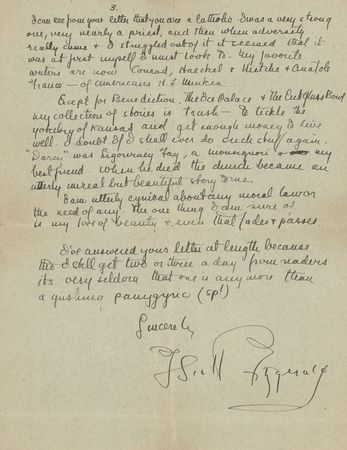 3.
I can see from your letter that you are a Catholic. I was a very strong
one, very nearly a priest, and then when adversity
really came & I struggled out of it it seemed that it
was at first myself I must look to. My favorite
writers are now Conrad, Haeckel & Nietche & Anatole
France — of Americans H. L. Menken.
Except for Benediction, The Ice Palace & The Cut Glass Bowl
my collection of stories is trash — to tickle the
yokelry of Kansas and get enough money to live
well. I doubt if I shall ever do such stuff again.
"Darcy" was Sigourney Fay, a monsignori & my
best friend. When he died the church became an
utterly unreal but beautiful story to me.
I am utterly cynical about any moral law or
the need of any. The one thing I am sure of
is my love of beauty & even that fades & passes
I've answered your letter at length because
tho I still get two or three a day from readers
its very seldom that one is any more than
a gushing panygyric (sp!)
Sincerely
F Scott Fitzgerald